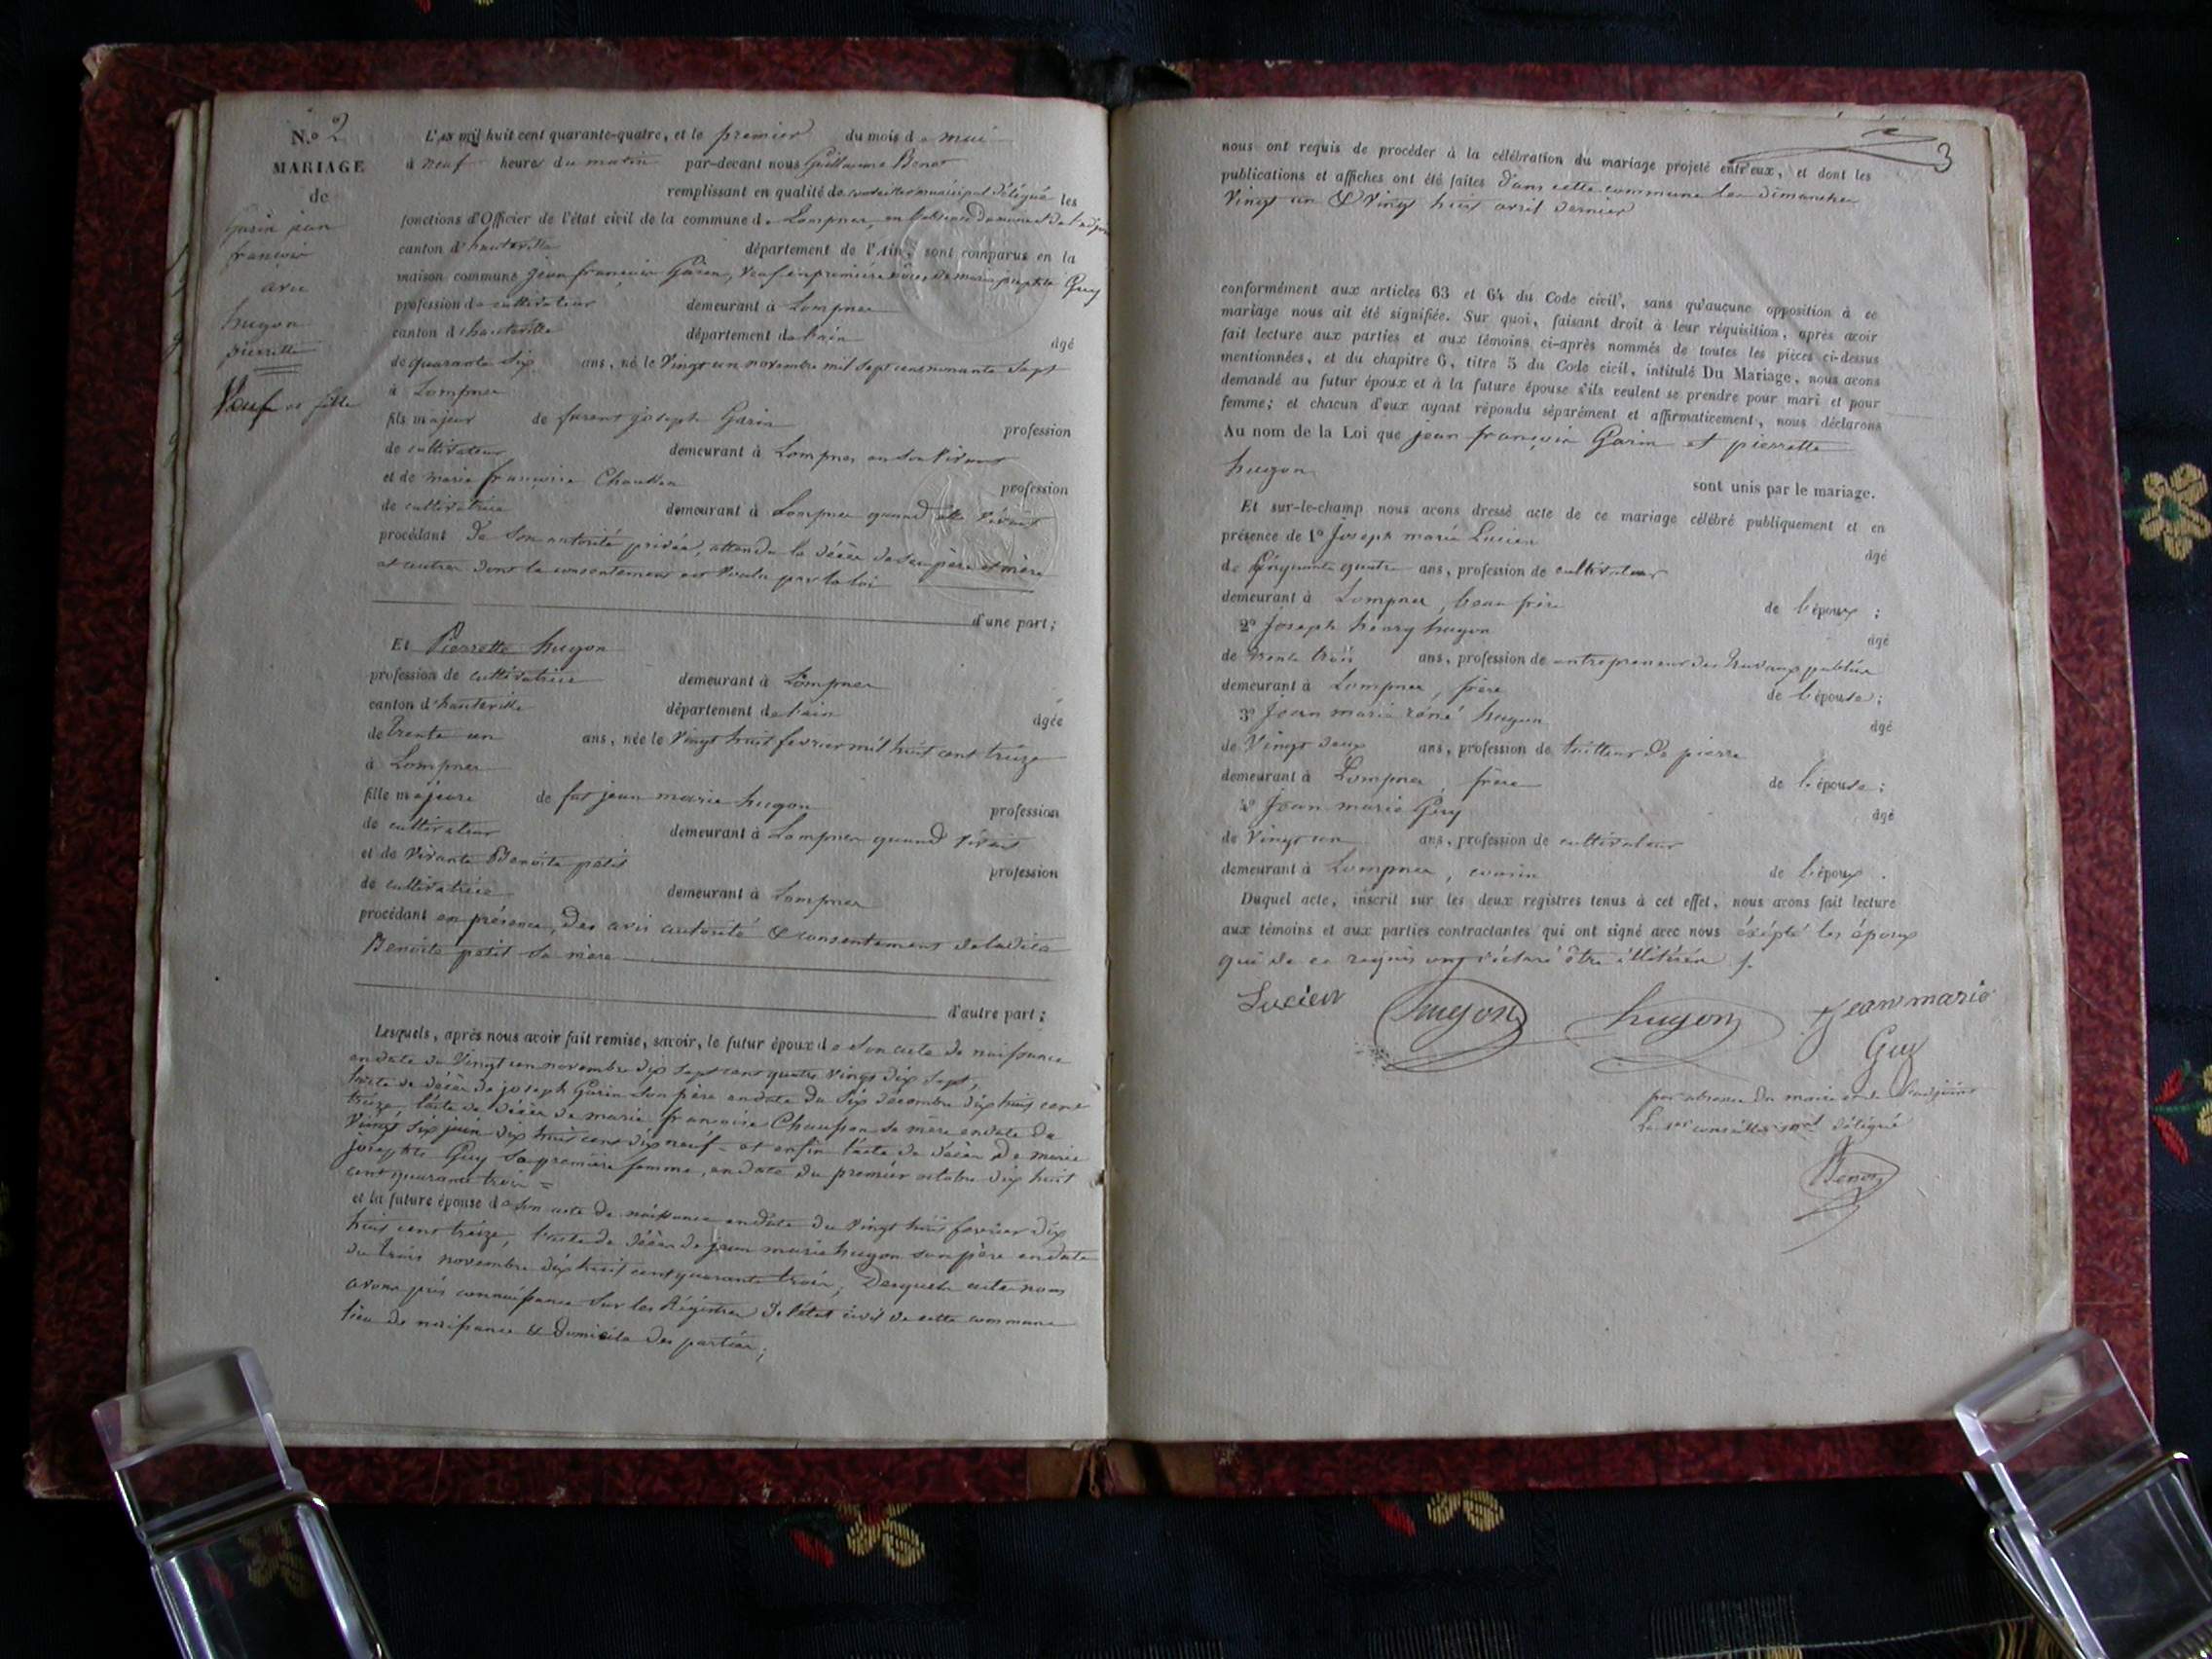 N.o 2
MARIAGE
de
Garin jean
françois
avec
hugon
pierrette
Veuf et fille
L'an mil huit cent quarante-quatre, et le premier du mois de mai
à neuf heures du matin par-devant nous Guillaume Benoi
remplissant en qualité de conseiller municipal délégué les
fonctions d'Officier de l'état civil de la commune de Lompnes, en
canton d'hauteville département de l'Ain, sont comparus en la
maison commune jean françois Garin, veuf en première noces de marie josephte Guy
profession de cultivateur demeurant à Lompnes
canton d'hauteville département de l'ain âgé
de quarante six ans, né le Vingt un novembre mil sept cent nonante sept
à Lompnes
fils majeur de furent joseph Garin profession
de cultivateur demeurant à Lompnes en son vivant
et de marie françoise profession
de cultivatrice demeurant à Lompnes quand elle vivait
procédant de son autorité privée, attendu le décès de ses père et mère
et autres dont le consentement est voulu par la loi
d'une part;
Et Pierrette hugon
profession de cultivatrice demeurant à Lompnes
canton d'hauteville département de l'ain âgée
de trente un ans, née le Vingt huit fevrier mil huit cent trèize
à Lompnes
fille majeure de fut jean marie hugon profession
de cultivateur demeurant à Lompnes quand vivait
et de vivante Benoite petit profession
de cultivatrice demeurant à Lompnes
procédant en présence, des avis autorité & consentement de ladite
Benoite petit sa mère
d'autre part;
Lesquels, après nous avoir fait remise, savoir, le futur époux de son acte de naissance
en date du Vingt un novembre dix sept cent quatre vingt dix sept,
l'acte de décès de joseph Garin son père en date du six décembre dix huit cent
trèize l'acte de décès de marie françoise sa mère en date du
Vingt six juin dix huit cent dix neuf - et enfin l'acte de décès de marie
josephte Guy sa première femme, en date du premier octobre dix huit
cent quarante trois =
et la future épouse de son acte de naissance en date du vingt huit fevrier dix
huit cent trèize, l'acte de décès de jean marie hugon son père en date
du trois novembre dix huit cent quarante trois, Desquels actes nous
avons pris connaissance sur les Régistres de l'état civil de cette commune
lieu de naissance & domicile des parties;
3
nous ont requis de procéder à la célébration du mariage projeté entr'eux, et dont les
publications et affiches ont été faites dans cette commune les dimanches
Vingt un & Vingt huit avril dernier
conformément aux articles 63 et 64 du Code civil, sans qu'aucune opposition à ce
mariage nous ait été signifiée. Sur quoi, faisant droit à leur réquisition, après avoir
fait lecture aux parties et aux témoins ci-après nommés de toutes les pièces ci-dessus
mentionnées, et du chapitre 6, titre 5 du Code civil, intitulé Du Mariage, nous avons
demandé au futur époux et à la future épouse s'ils veulent se prendre pour mari et pour
femme; et chacun d'eux ayant répondu séparément et affirmativement, nous déclarons
Au nom de la Loi que jean françois Garin et pierrette
hugon
sont unis par le mariage.
Et sur-le-champ nous avons dressé acte de ce mariage célébré publiquement et en
présence de 1º Joseph marie Lucien âgé
de Cinquante quatre ans, profession de cultivateur
demeurant à Lompnes, beau frère de l'époux;
2º Joseph henry hugon âgé
de trente trois ans, profession de entrepreneur des travaux publics
demeurant à Lompnes, frère de l'épouse;
3º Jean marie réné hugon âgé
de Vingt deux ans, profession de tailleur de pierre
demeurant à Lompnes, frère de l'épouse;
4º Jean marie Guy âgé
de Vingt un ans, profession de cultivateur
demeurant à Lompnes, cousin de l'époux.
Duquel acte, inscrit sur les deux registres tenus à cet effet, nous avons fait lecture
aux témoins et aux parties contractantes qui ont signé avec nous éxépté les époux
qui de ce requis ont déclaré être illitérés
Lucien hugon hugon jean marie
Guy
par absence du maire et de l'adjoint
Le 1er conseiller mpal délégué